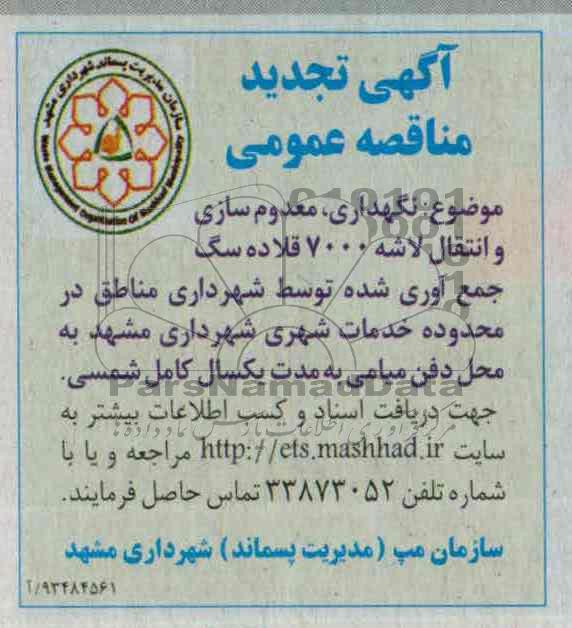 آگهی تجدید
مناقصه عمومی
موضوع: نگهداری، معدوم سازی
و انتقال لاشه ۷۰۰۰ قلاده سگ
جمع آوری شده توسط شهرداری مناطق در
محدوده خدمات شهری شهرداری مشهد به
محل دفن میامی به مدت یکسال کامل شمسی.
ParsNamadData
جهت دریافت اسناد و کسب اطلاعات بیشتر به
سایت http://ets.mashhad.ir مراجعه و یا با
شماره تلفن ۳۳۸۷۳۰۵۲ تماس حاصل فرمایند.
سازمان مپ (مدیریت پسماند) شهرداری مشهد
۹۳۴۸۴۵۶۱/آ
سازمان مدیریت پسماند شهرداری مشهد